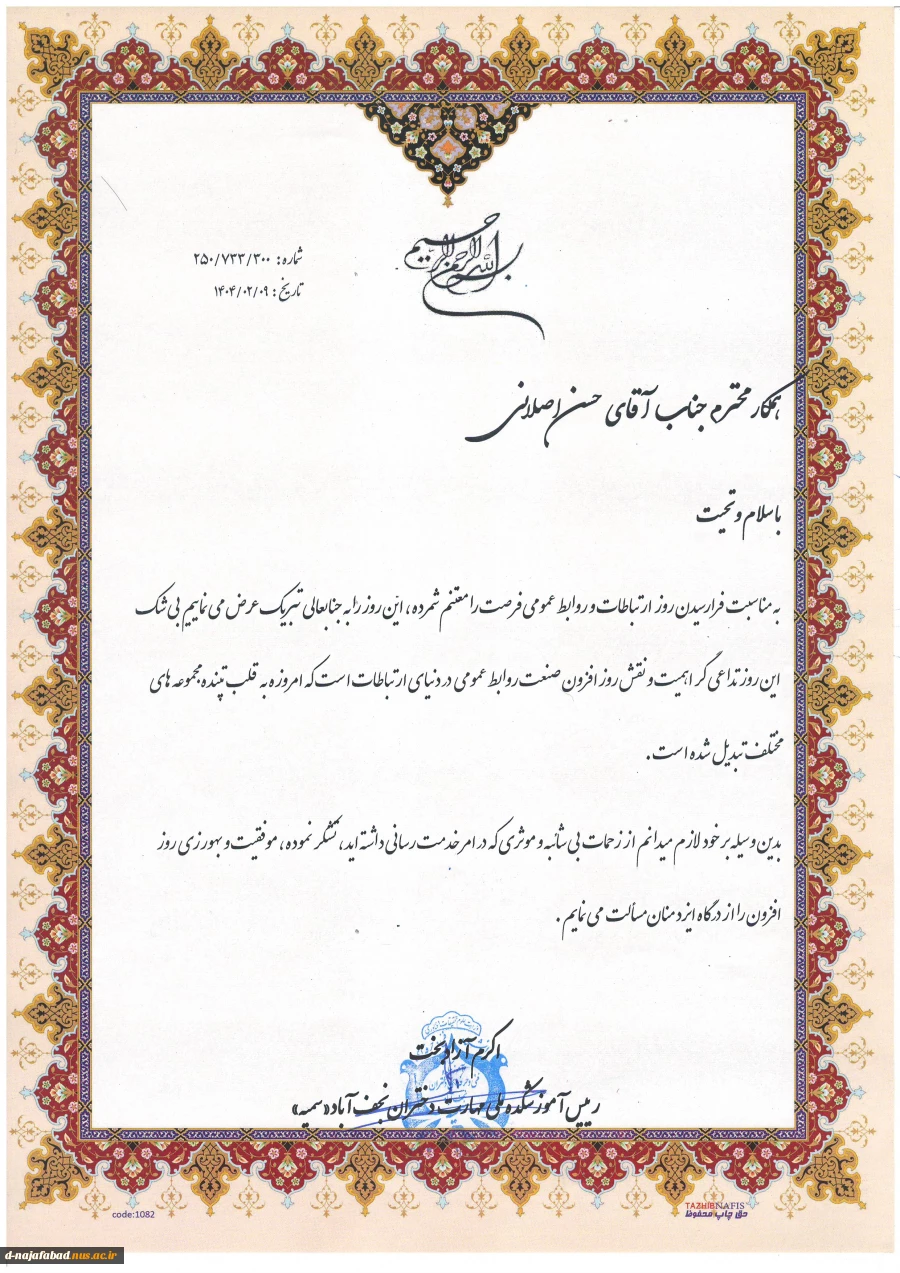 بسم الله الرحمن الرحیم
شماره: ۲۵۰/۷۳۳/۳۰۰
تاریخ: ۱۴۰۴/۰۲/۰۹
همکار محترم جناب آقای حسن اصلانی
باسلام و تحیت
به مناسبت فرارسیدن روز ارتباطات و روابط عمومی فرصت را مغتنم شمرده، این روز را به جنابعالی تبریک عرض می نماییم بی شک
این روز تداعی گر اهمیت و نقش روز افزون صنعت روابط عمومی در دنیای ارتباطات است که امروزه به قلب تپنده مجموعه های
مختلف تبدیل شده است.
بدین وسیله بر خود لازم میدانم از زحمات بی شائبه و موثری که در امر خدمت رسانی داشته اید، تشکر نموده، موفقیت و بهورزی روز
افزون را از درگاه ایزد منان مسألت می نمایم.
اکرم آزادبخت
رییس آموزشکده ملی مهارت دختران نجف آباد «سمیه»
code:1082
TAZHIBNAFIS
حق چاپ محفوظ
d-najafabad.nus.ac.ir